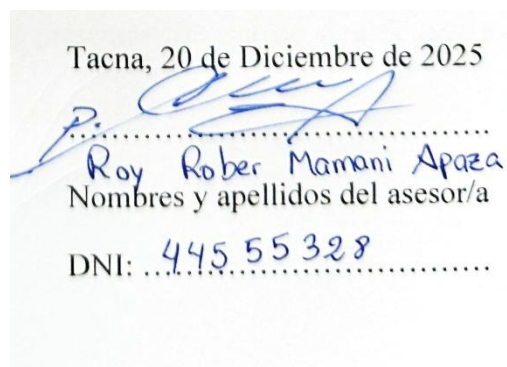 Tacna, 20 de Diciembre de 2025
P:..............................................
Roy Rober Mamani Apaza
Nombres y apellidos del asesor/a
DNI: 44555328